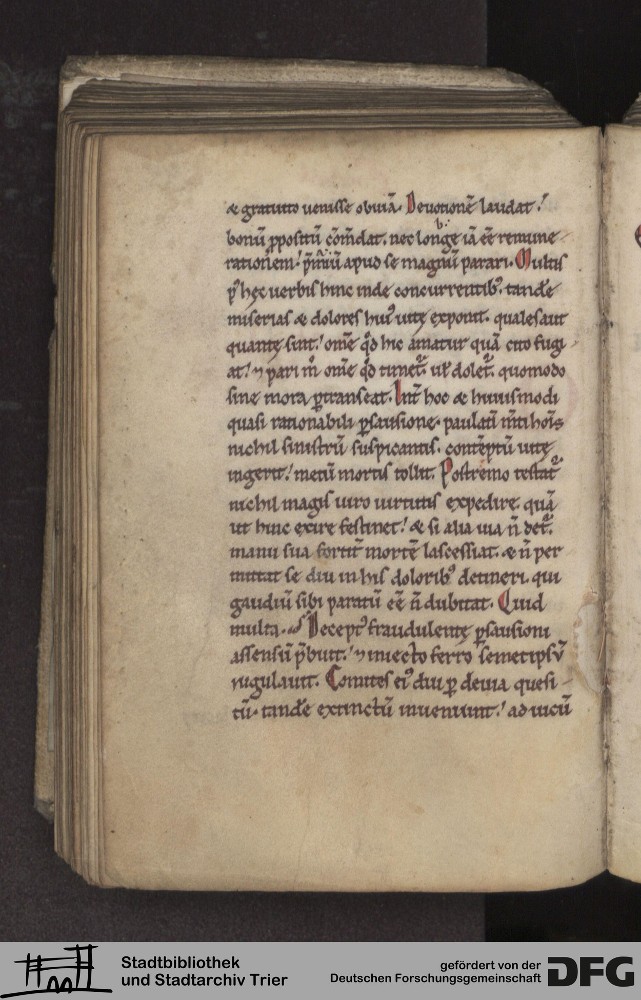 & gratuito uenisse obuiā. Deuotionē laudat!
bonū ꝓpositū cōmdat. nec longe iā eē remune
rationem! p̄miū apud se magnū parari. Multis
p͛ hęc uerbis hinc inde concurrentib; tande
miserias & dolores hui᷒ uitę exponit. quales aut
quantę sint! om̄e qd̄ hic amatur quā cito fugi
at! ⁊ pari m̊ om̄e qd̄ timet᷑. uł dolet᷑. quomodo
sine mora ꝑtranseat. Int̄ hoc & huiusmodi
quasi rationabili ꝑsuasione. paulatī m̄ti hoīs
nichil sinistrū suspicantis. contēptū uitę
ingerit! metū mortis tollit. Postremo testat᷑
nichil magis uiro uirtutis expedire. quā
ut hinc exire festinet! & si alia uia n̄ det᷑.
manu sua fortit̄ mortē lascessiat. & n̄ per
mittat se diu in his dolorib; detineri. qui
gaudiū sibi paratū eē n̄ dubitat. Quid
multa. Decept᷒ fraudulentę ꝑsuasioni
assensū p̄buit! ⁊ iniecto ferro semetipsū
iugulauit. Comites ei᷒ diu ꝑ deuia quesi
tū. tande extinctū inueniunt! ad uicū
Stadtbibliothek
und Stadtarchiv Trier
gefördert von der
Deutschen Forschungsgemeinschaft
DFG